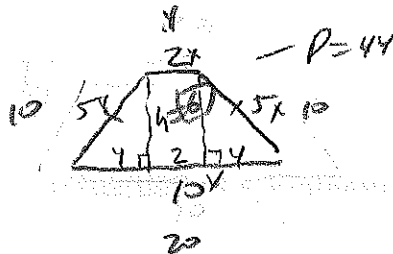 4
2x — P=44
10 5x h 6 5x 10
4 2 4
10x
20